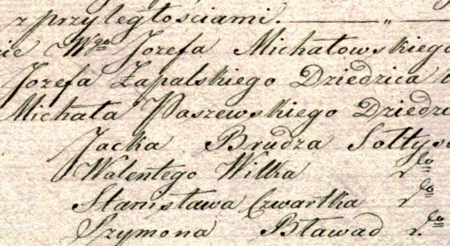 z przyległościami. — „ —
zie Wgo Jozefa Michałowskiego
Jozefa Zapalskiego Dziedzica
Michała Paszewskiego Dziedzi
Jacka Brudza Sołtys
Walentego Wilka
Stanisława Czwartka
Szymona Bławad